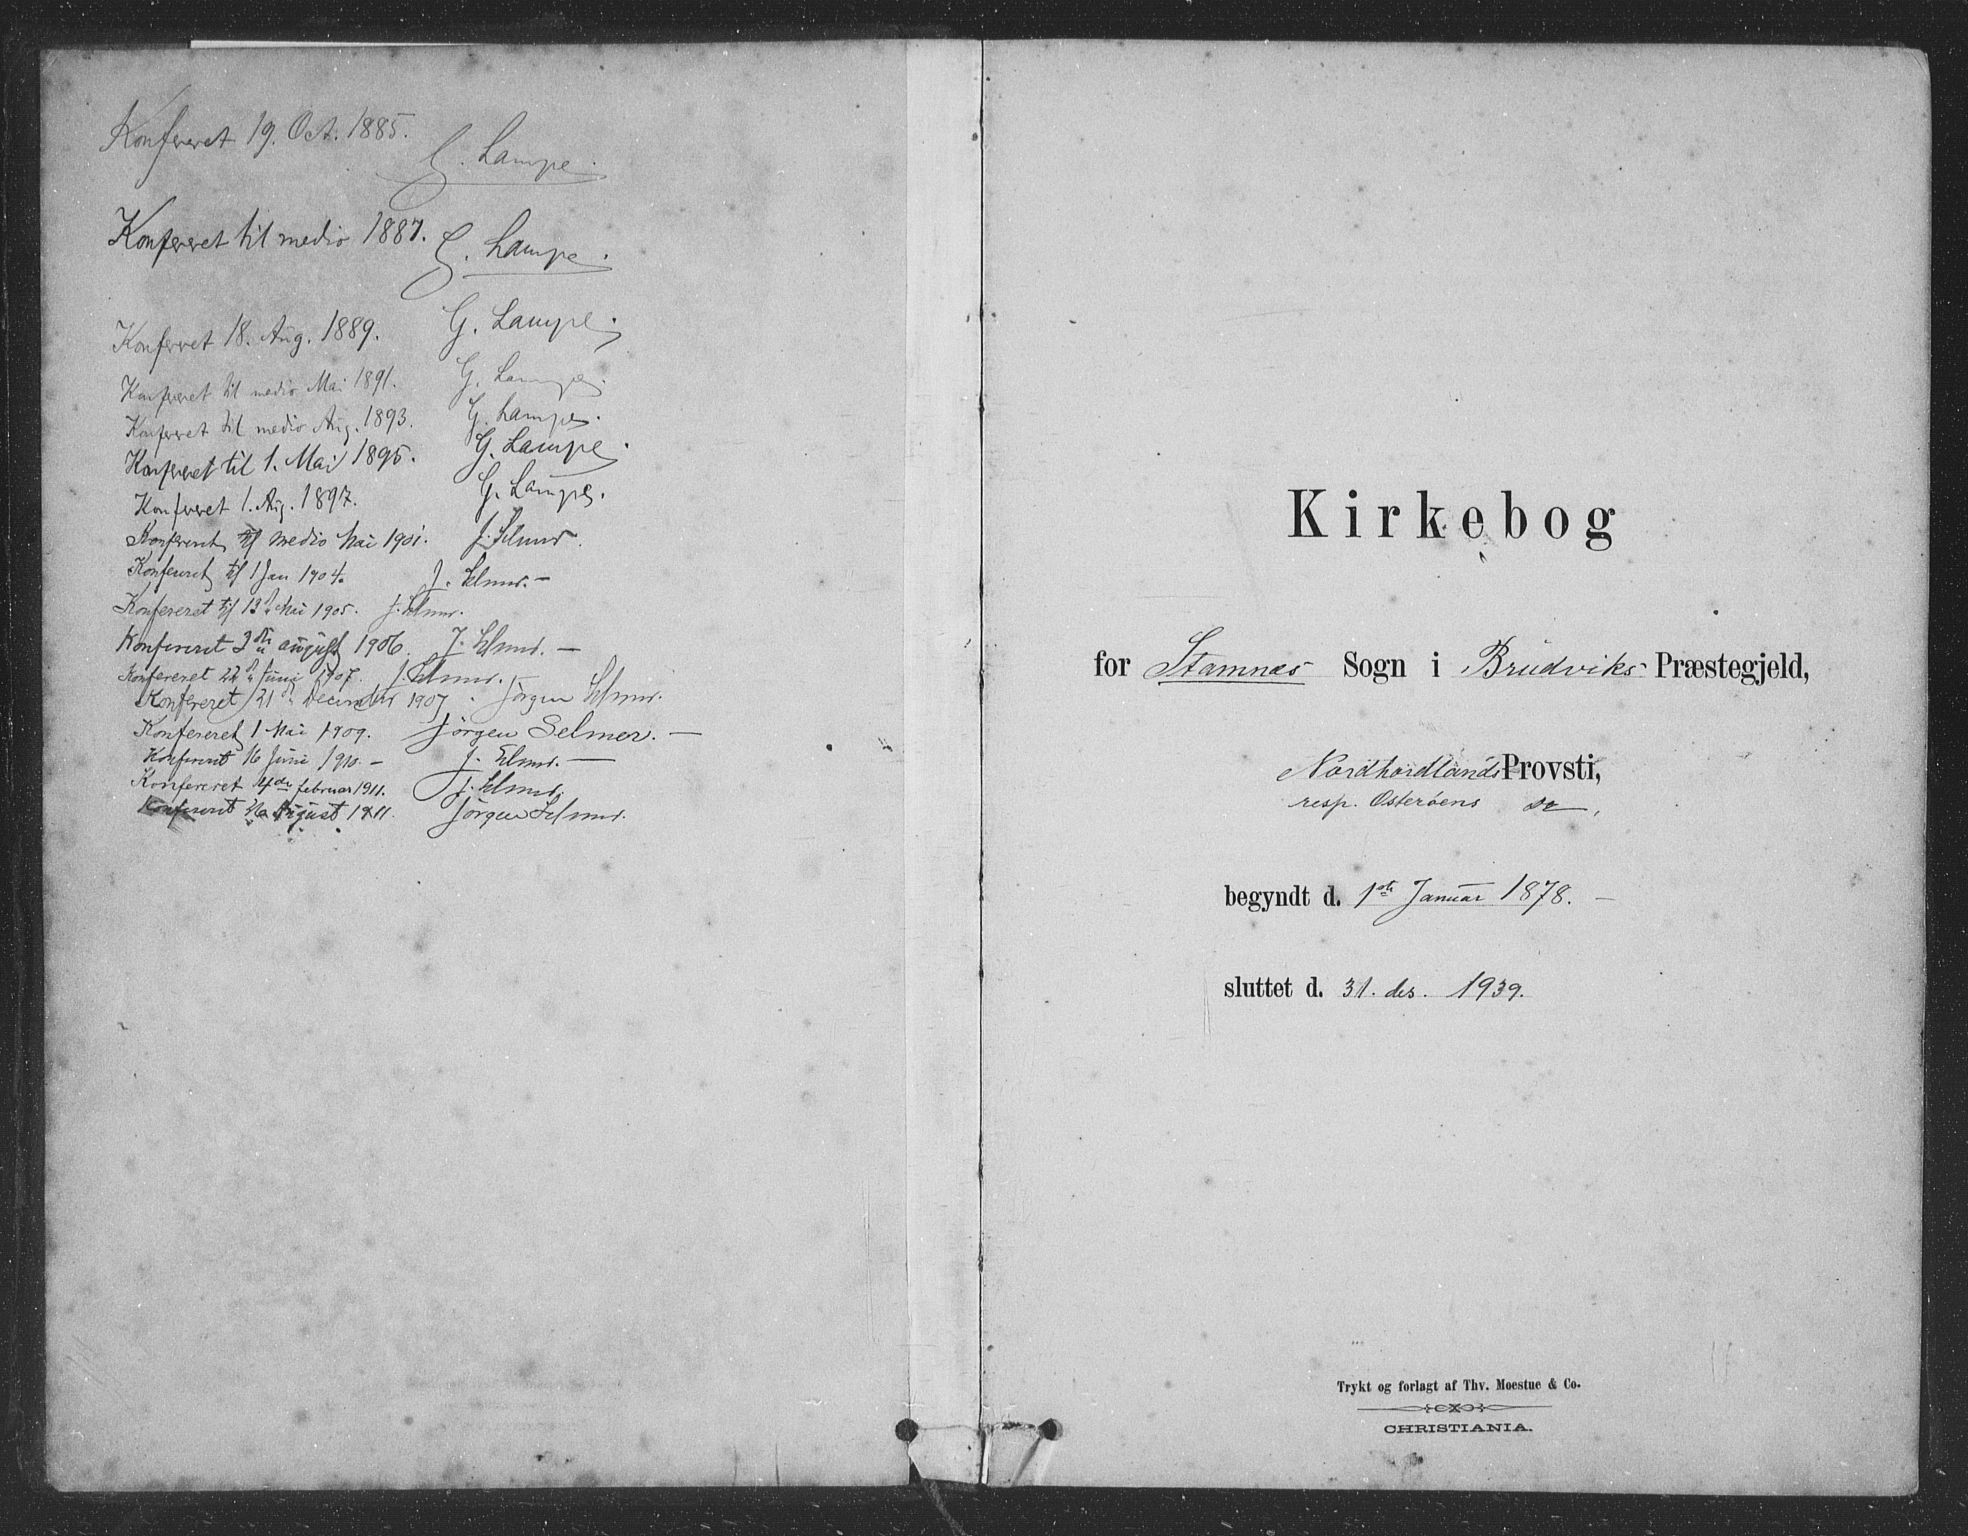 Konfereret 19. Oct. 1885. G. Lampe.
Konfereret til medio 1887. G. Lampe.
Konfereret 18. Aug. 1889. G. Lampe.
Konfereret til medio Mai 1891. G. Lampe.
Konfereret til medio Aug. 1893. G. Lampe.
Konfereret til 1. Mai 1895. G. Lampe.
Konfereret 1. Aug. 1897. G. Lampe.
Konfereret til medio Mai 1901. J. Selmer.
Konfereret til 1 Jan 1904. J. Selmer. —
Konfereret til 13de Mai 1905. J. Selmer.
Konfereret 3die august 1906. J. Selmer. —
Konfereret 22de Juni 1907. J. Selmer.
Konfereret 21de December 1907. Jørgen Selmer.
Konfereret 1 Mai 1909. Jørgen Selmer. —
Konfereret 16 Juni 1910. – J. Selmer. —
Konfereret 4de februar 1911. J. Selmer.
Konfereret August 1911. Jørgen Selmer.
Kirkebog
for Stamnæs Sogn i Brudviks Præstegjeld,
Nordhordlands Provsti,
resp. Osterøens do,
begyndt d. 1ste Januar 1878. –
sluttet d. 31. des. 1939.
Trykt og forlagt af Thv. Moestue & Co.
CHRISTIANIA.